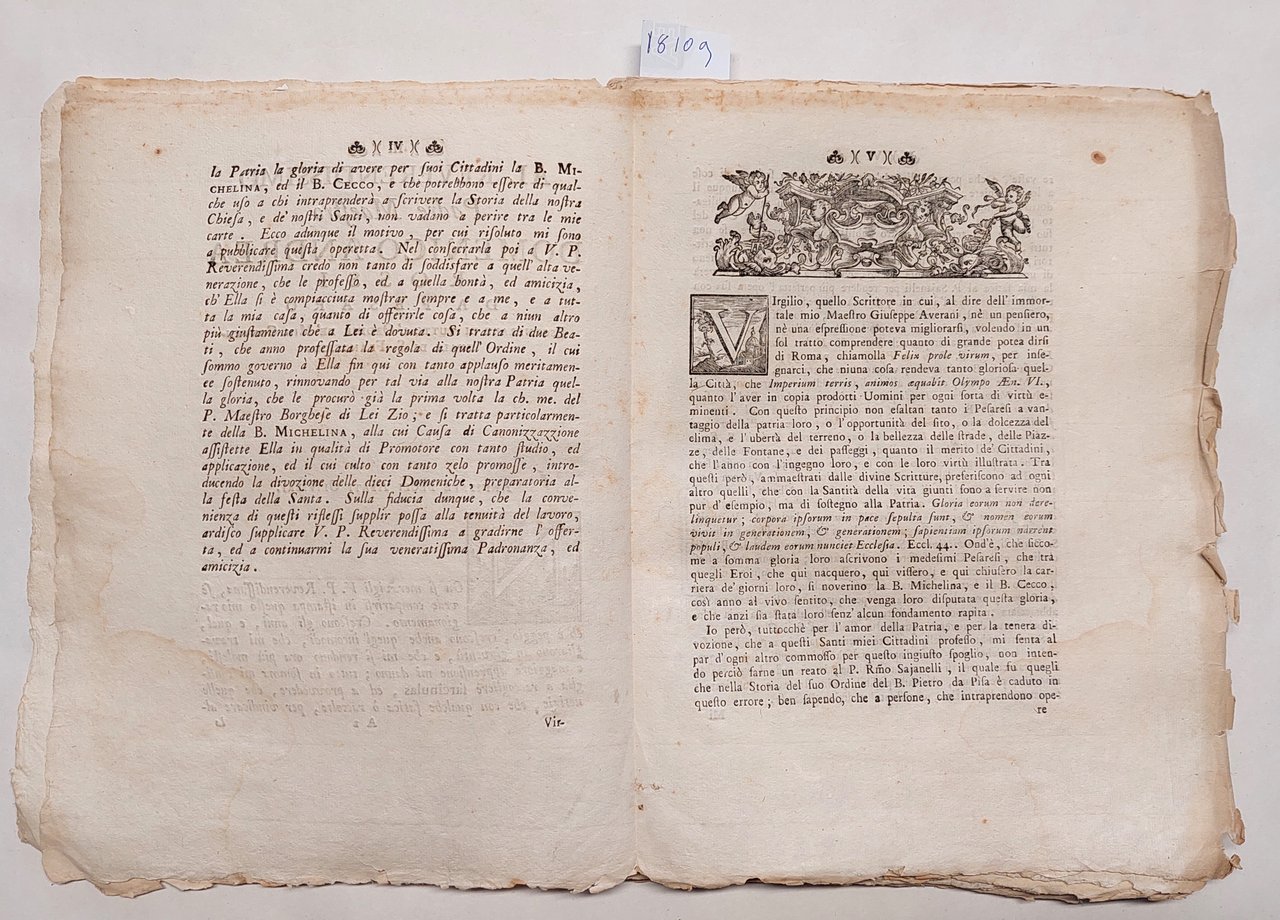 18109
IV
la Patria la gloria di avere per ſuoi Cittadini la B. MI-
CHELINA, ed il B. CECCO, e che potrebbono eſſere di qual-
che uſo a chi intraprenderà a ſcrivere la Storia della noſtra
Chieſa, e de' noſtri Santi, non vadano a perire tra le mie
carte. Ecco adunque il motivo, per cui riſoluto mi ſono
a pubblicare queſta operetta. Nel conſecrarla poi a V. P.
Reverendiſſima credo non tanto di ſoddisfare a quell' alta ve-
nerazione, che le profeſſo, ed a quella bontà, ed amicizia,
ch' Ella ſi è compiacciuta moſtrar ſempre e a me, e a tut-
ta la mia caſa, quanto di offerirle coſa, che a niun altro
più giuſtamente che a Lei è dovuta. Si tratta di due Bea-
ti, che anno profeſſata la regola di quell' Ordine, il cui
ſommo governo à Ella fin qui con tanto applauſo meritamen-
te ſoſtenuto, rinnovando per tal via alla noſtra Patria quel-
la gloria, che le procurò già la prima volta la ch. me. del
P. Maeſtro Borgheſe di Lei Zio; e ſi tratta particolarmen-
te della B. MICHELINA, alla cui Cauſa di Canonizzazzione
aſſiſtette Ella in qualità di Promotore con tanto ſtudio, ed
applicazione, ed il cui culto con tanto zelo promoſſe, intro-
ducendo la divozione delle dieci Domeniche, preparatoria al-
la feſta della Santa. Sulla fiducia dunque, che la conve-
nienza di queſti rifleſſi ſupplir poſſa alla tenuità del lavoro,
ardiſco ſupplicare V. P. Reverendiſſima a gradirne l' offer-
ta, ed a continuarmi la ſua veneratiſſima Padronanza, ed
amicizia.
Vir-
V
VIrgilio, quello Scrittore in cui, al dire dell' immor-
tale mio Maeſtro Giuſeppe Averani, nè un penſiero,
nè una eſpreſſione poteva migliorarſi, volendo in un
ſol tratto comprendere quanto di grande potea dirſi
di Roma, chiamolla Felix prole virum, per inſe-
gnarci, che niuna coſa rendeva tanto glorioſa quel-
la Città, che Imperium terris, animos æquabit Olympo Æn. VI.,
quanto l' aver in copia prodotti Uomini per ogni ſorta di virtù e-
minenti. Con queſto principio non eſaltan tanto i Peſareſi a van-
taggio della patria loro, o l' opportunità del ſito, o la dolcezza del
clima, e l' ubertà del terreno, o la bellezza delle ſtrade, delle Piaz-
ze, delle Fontane, e dei paſſeggi, quanto il merito de' Cittadini,
che l' anno con l' ingegno loro, e con le loro virtù illuſtrata. Tra
queſti però, ammaeſtrati dalle divine Scritture, preferiſcono ad ogni
altro quelli, che con la Santità della vita giunti ſono a ſervire non
pur d' eſempio, ma di ſoſtegno alla Patria. Gloria eorum non dere-
linquetur; corpora ipſorum in pace ſepulta ſunt, & nomen eorum
vivit in generationem, & generationem; ſapientiam ipſorum narrent
populi, & laudem eorum nunciet Eccleſia. Eccl. 44.. Ond' è, che ſicco-
me a ſomma gloria loro aſcrivono i medeſimi Peſareſi, che tra
quegli Eroi, che qui nacquero, qui viſſero, e qui chiuſero la car-
riera de' giorni loro, ſi noverino la B. Michelina, e il B. Cecco,
così anno al vivo ſentito, che venga loro diſputata queſta gloria,
e che anzi ſia ſtata loro ſenz' alcun fondamento rapita.
Io però, tuttocchè per l' amor della Patria, e per la tenera di-
vozione, che a queſti Santi miei Cittadini profeſſo, mi ſenta al
par d' ogni altro commoſſo per queſto ingiuſto ſpoglio, non inten-
do perciò farne un reato al P. Rmo Sajanelli, il quale fu quegli
che nella Storia del ſuo Ordine del B. Pietro da Piſa è caduto in
queſto errore; ben ſapendo, che a perſone, che intraprendono ope-
re